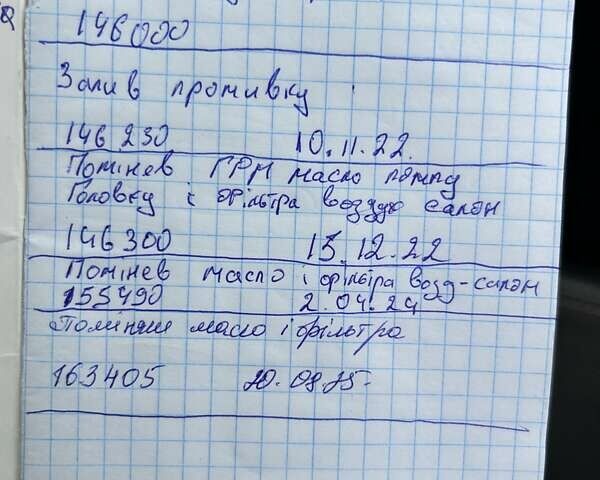 146000
Залив промивку
146 230 10.11.22.
Помінев ГРМ масло помпу
Головку і фільтра воздух салон
146 300 15.12.22
Помінев масло і фільтра возд-салон
155490 2.04.24
Поміняли масло і фільтра
163405 20.08.25